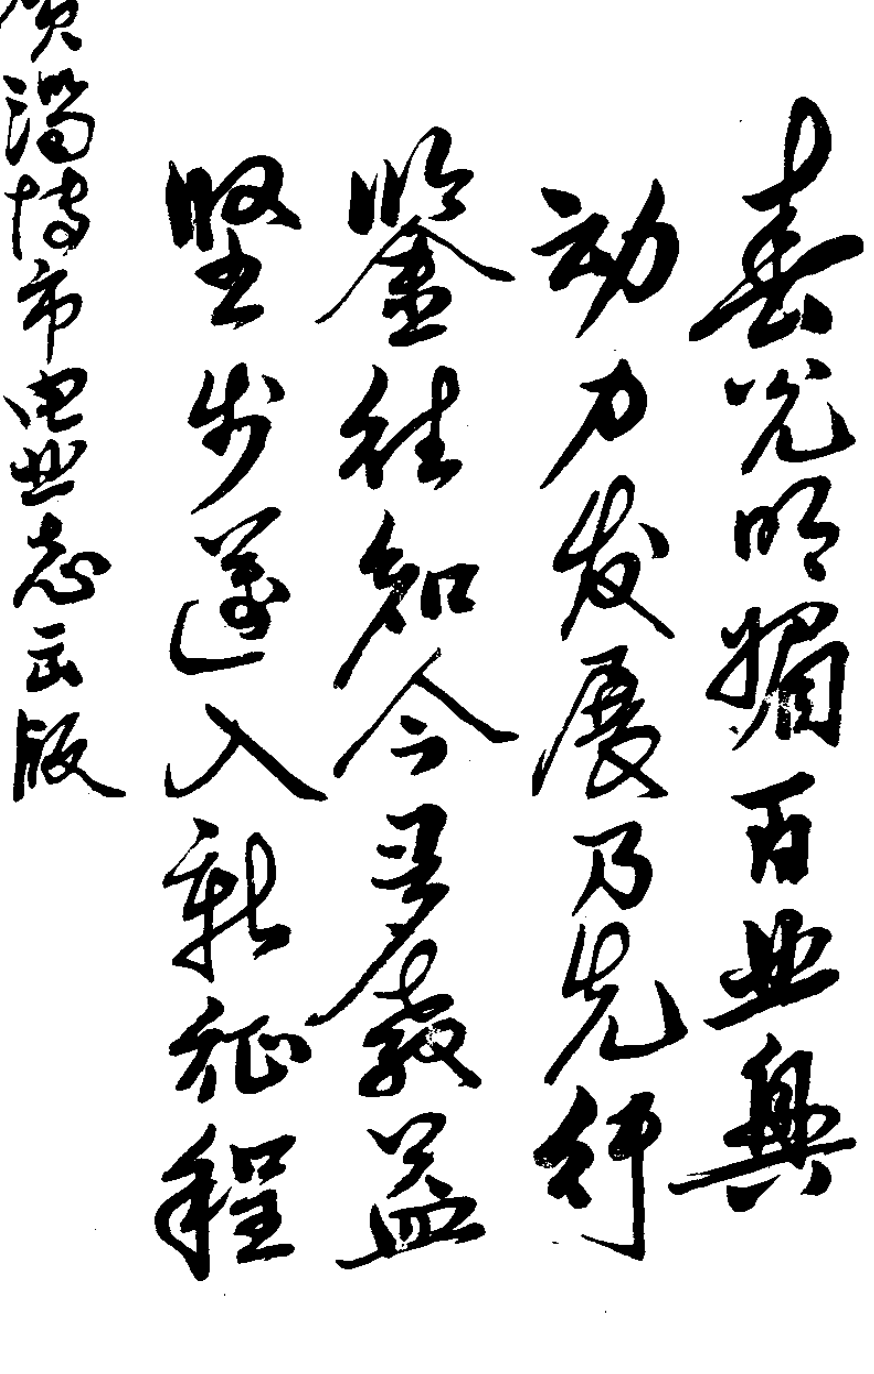 春光明媚百业興
动力发展乃先行
鉴往知今多教益
坚步迈入新征程
贺淄博市电业志出版